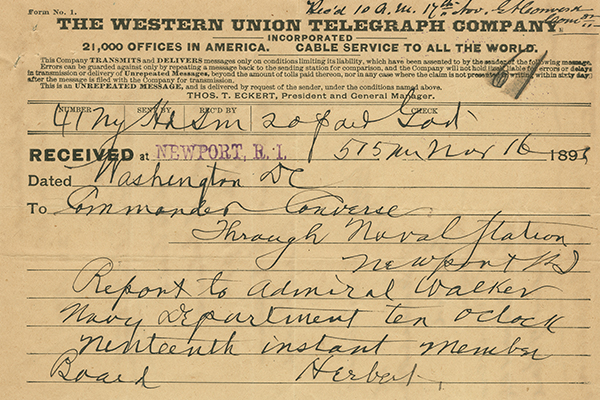 Form No. 1.
Rec'd 10 A.M. 17th Nov. G A Converse
Comdr
THE WESTERN UNION TELEGRAPH COMPANY.
INCORPORATED
21,000 OFFICES IN AMERICA. CABLE SERVICE TO ALL THE WORLD.
This Company TRANSMITS and DELIVERS messages only on conditions limiting its liability, which have been assented to by the sender of the following message.
Errors can be guarded against only by repeating a message back to the sending station for comparison, and the Company will not hold itself liable for errors or delays
in transmission or delivery of Unrepeated Messages, beyond the amount of tolls paid thereon, nor in any case where the claim is not presented in writing within sixty days
after the message is filed with the Company for transmission.
This is an UNREPEATED MESSAGE, and is delivered by request of the sender, under the conditions named above.
THOS. T. ECKERT, President and General Manager.
NUMBER SENT BY REC'D BY CHECK
41 Ny Hd Sm 20 paid Govt
RECEIVED at NEWPORT, R. I. 515 Nov 16 189
Dated Washington DC
To Commander Converse
Through Naval Station
Newport RI
Report to Admiral Walker
Navy Department ten oclock
ninteenth instant member
Board Herbert.